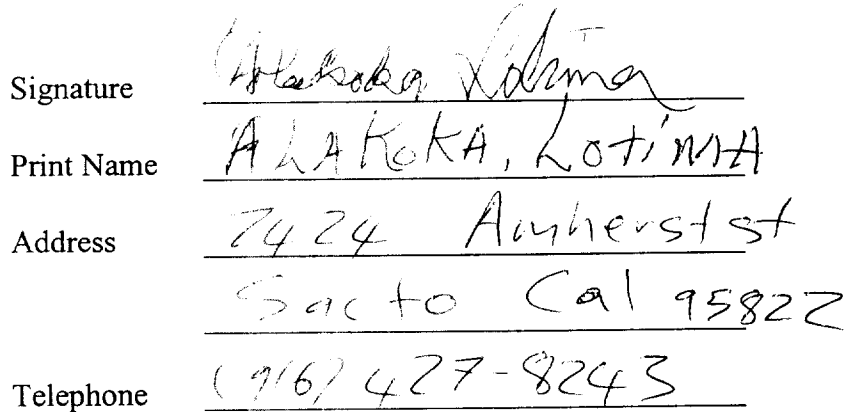 Signature Alakoka Lotima
Print Name ALAKOKA, LotiMA
Address 7424 Amherst st
Sacto Cal 95822
Telephone (916) 427-8243